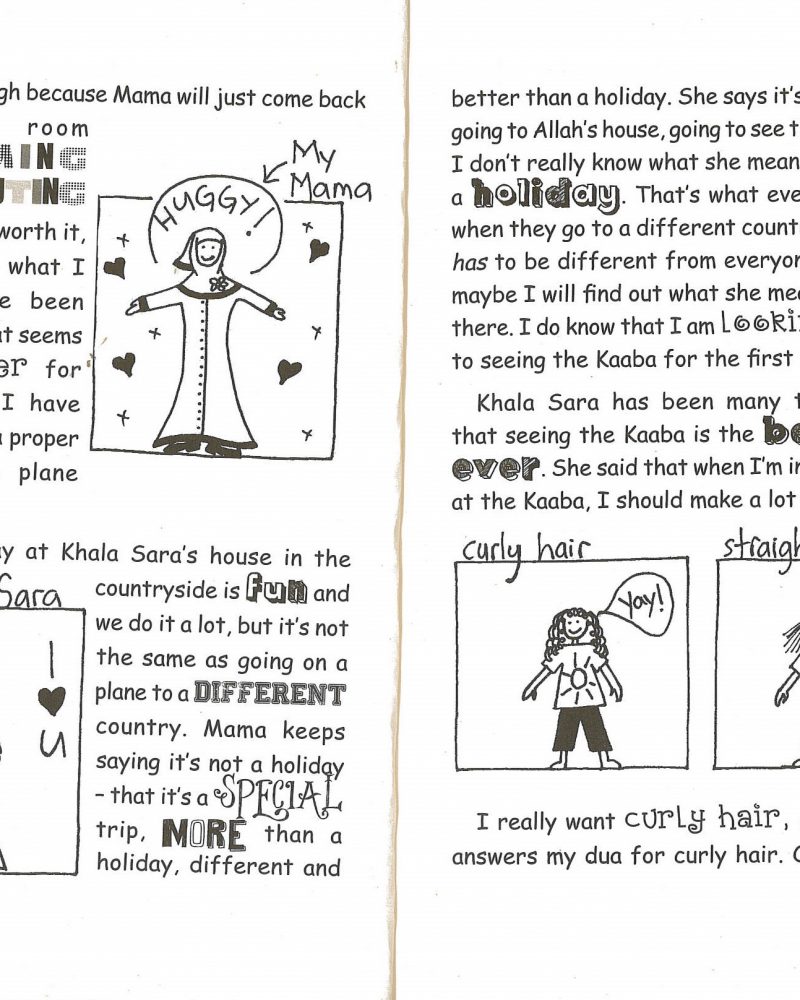 gh because Mama will just come back
room
AING
UTING
worth it,
what I
e been
at seems
er for
I have
a proper
plane
My
Mama
HUGGY!
ay at Khala Sara's house in the
Sara
I
u
countryside is fun and
we do it a lot, but it's not
the same as going on a
plane to a DIFFERENT
country. Mama keeps
saying it's not a holiday
– that it's a SPECIAL
trip, MORE than a
holiday, different and
better than a holiday. She says it's
going to Allah's house, going to see t
I don't really know what she mean
a holiday. That's what eve
when they go to a different count
has to be different from everyon
maybe I will find out what she mea
there. I do know that I am LOOKI
to seeing the Kaaba for the first
Khala Sara has been many t
that seeing the Kaaba is the be
ever. She said that when I'm in
at the Kaaba, I should make a lot
curly hair
Yay!
straigh
I really want curly hair,
answers my dua for curly hair.